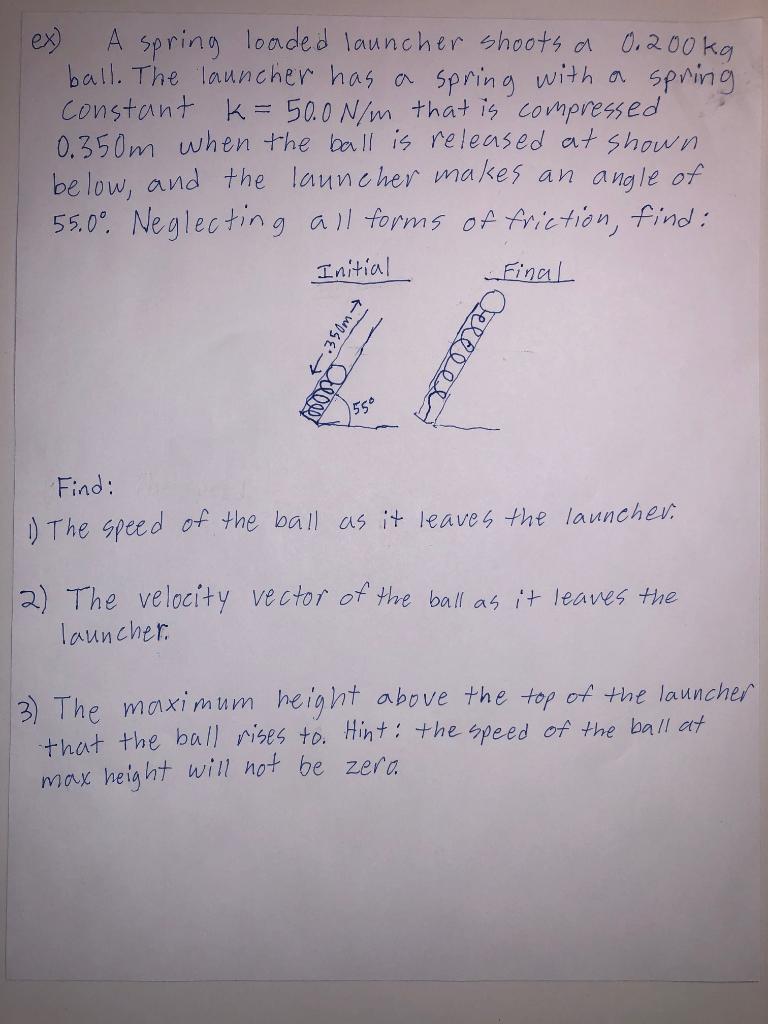 ex) A spring loaded launcher shoots a 0.200kg
ball. The launcher has a spring with a spring
constant k = 50.0 N/m that is compressed
0.350m when the ball is released at shown
below, and the launcher makes an angle of
55.0°. Neglecting all forms of friction, find:
Initial Final
.350m
55°
Find:
1) The speed of the ball as it leaves the launcher.
2) The velocity vector of the ball as it leaves the
launcher.
3) The maximum height above the top of the launcher
that the ball rises to. Hint: the speed of the ball at
max height will not be zero.